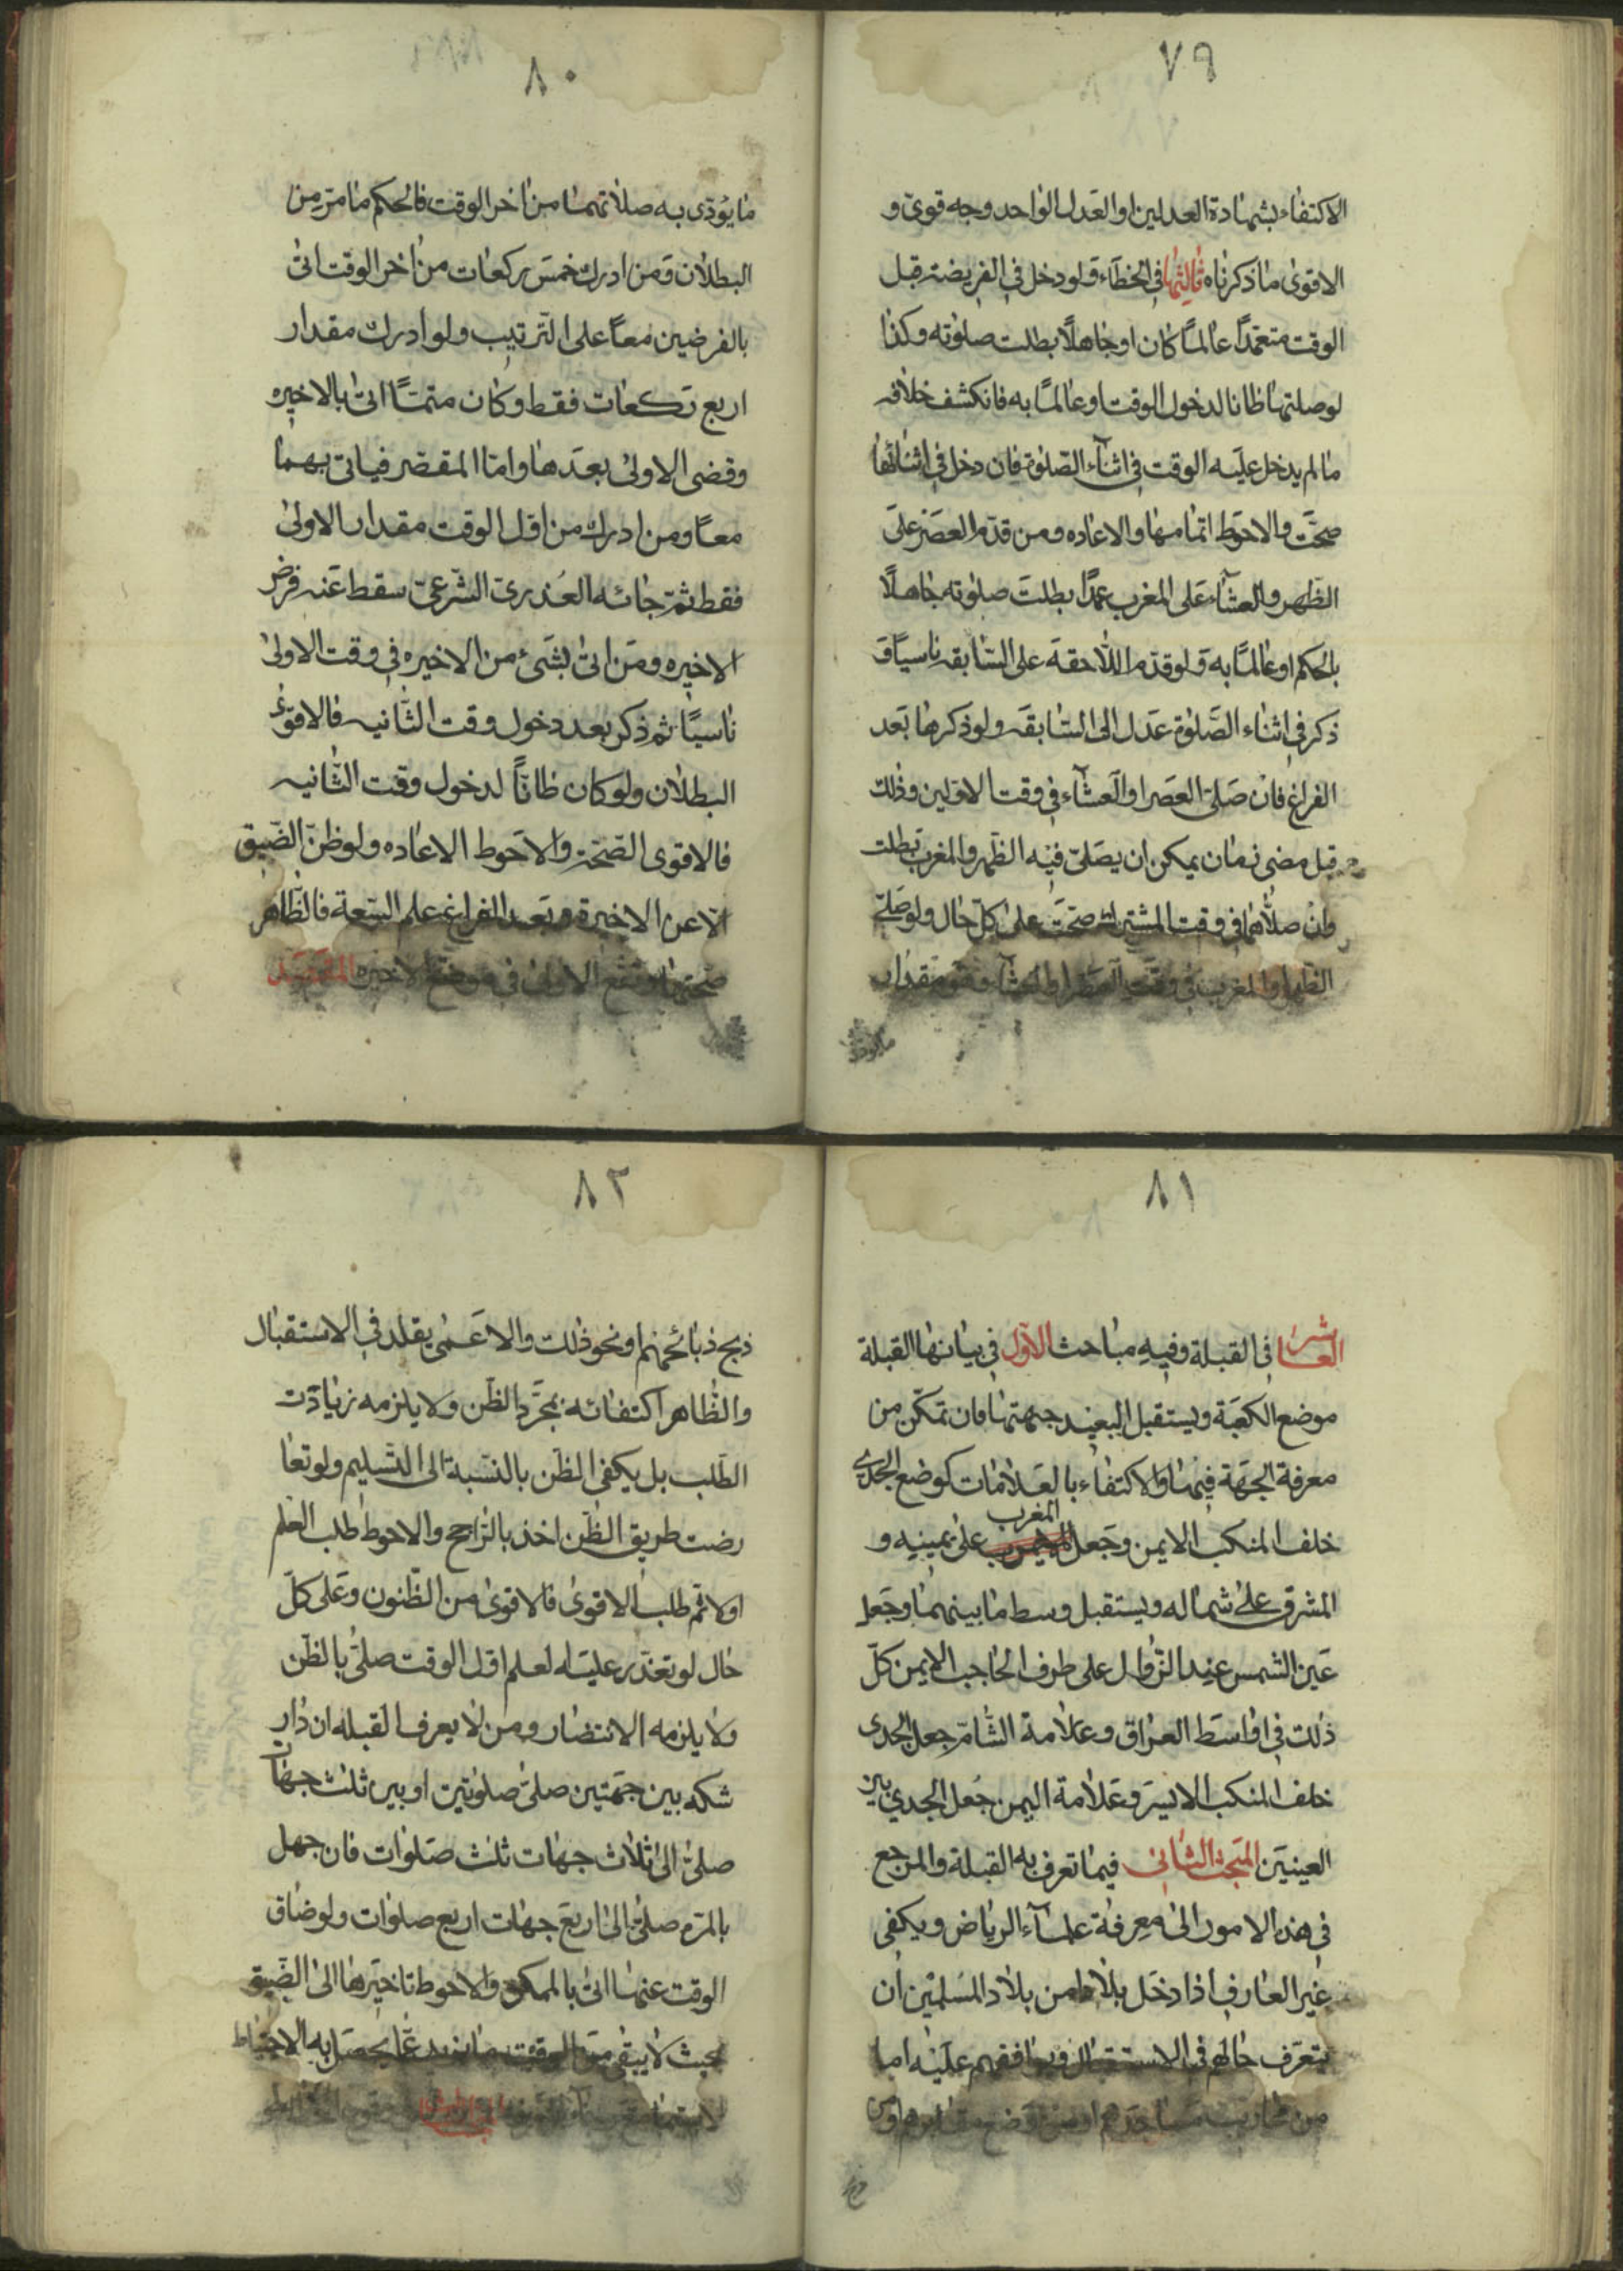 ٧٩
الاكتفاء بشهادة العدلين او العدل الواحد وجه قوىّ و
الاقوىٰ ماذكرناه ثالثها فى الخطاء فلو دخل فى الفريضة قبل
الوقت متعمّداً عالماً كان او جاهلاً بطلت صلوته وكذا
لوصلتها ظانا لدخول الوقت اوعالماً به فانكشف خلافه
مالم يدخل عليه الوقت فى اثنآء الصّلوة فان دخل فى اثنائها
صحّت والاحوط اتمامها والاعاده ومن قدّم العصر على
الظّهر والعشآء على المغرب عمدًا بطلت صلوته جاهلاً
بالحكم اوعالمًا به فلو قدّم اللّاحقة على السّابقه ناسيًا و
ذكر فى اثناء الصّلوة عدل الى السّابقه ولو ذكرها بعد
الفراغ فان صلّى العصر او العشآء فى وقت الاولين وذلك
قبل مضى زمان يمكن ان يصلىّ فيه الظّهر والمغرب بطلت
وان صلاّهما فى وقت المشترك صحّت علىٰ كلّ حال ولو صلّى
الظهر او المغرب فى وقت العصر او العشآء وهو مقدار
مايؤدى
٨٠
مايؤدّى به صلاتهما من اخر الوقت فالحكم مامرّ من
البطلان ومن ادرك خمس ركعات من اخر الوقت اتىٰ
بالفرضين معاً على التّرتيب ولو ادرك مقدار
اربع ركعات فقط وكان متمّاً اتىٰ بالاخيره
وقضى الاولىٰ بعدها وامّا المقصّر فياتى بهما
معًا ومن ادرك من اوّل الوقت مقدار الاولىٰ
فقط ثمّ جائه العذر الشّرعىّ سقط عنه فرض
الاخيره ومن اتىٰ بشىء من الاخيره فى وقت الاولىٰ
ناسيًا ثم ذكر بعد دخول وقت الثّانيه فالاقوىٰ
البطلان ولو كان ظانّاً لدخول وقت الثّانيه
فالاقوى الصّحّة والاحوط الاعاده ولو ظنّ الضّيق
الاّ عن الاخيرة وبعد الفراغ علم السّعة فالظّاهر
صحّتها وتقع الاولىٰ فى موضع الاخيره المقصد
٨١
العاشر فى القبلة وفيه مباحث الاوّل فى بيانها القبلة
موضع الكعبة ويستقبل البعيد جهتها فان تمكّن من
معرفة الجهة فيها والاكتفاء بالعلامات كوضع الجدى
خلف المنكب الايمن وجعل المغرب علىٰ يمينه و
المشرق علىٰ شماله ويستقبل وسط ما بينهما وجعل
عين الشمس عند الزّوال على طرف الحاجب الايمن كلّ
ذلك فى اواسط العراق وعلامة الشّام جعل الجدى
خلف المنكب الايسر وعلامة اليمن جعل الجدي بين
العينين المبحث الثانى فيما تعرف به القبلة والمرجع
فى هذه الامور الىٰ معرفة علمآء الرياض ويكفى
غير العارف اذا دخل بلادا من بلاد المسلمين ان
يتعرّف حالهم فى الاستقبال ويوافقهم عليه اما
من محاريب مساجدهم او من وضع مقابرهم او من
٨٢
ذبح ذبائحهم او نحو ذلك والاعمىٰ يقلد فى الاستقبال
والظّاهر اكتفائه بمجرّد الظّن ولا يلزمه زيادت
الطّلب بل يكفى الظّن بالنّسبة الى التّسليم ولو تعا
رضت طريق الظّن اخذ بالرّاجح والاحوط طلب العلم
اولا ثم طلب الاقوى فالاقوىٰ من الظّنون وعلى كلّ
حال لو تعذّر عليه العلم اوّل الوقت صلىّ بالظّن
ولا يلزمه الانتضار ومن لا يعرف القبله ان دار
شكه بين جهتين صلىّ صلوتين او بين ثلث جهات
صلىّ الىٰ ثلاث جهات ثلث صلوات فان جهل
بالمرّه صلىّ الىٰ اربع جهات اربع صلوات ولو ضاق
الوقت عنها اتىٰ بالممكن والاحوط تاخيرها الىٰ الضّيق
بحيث لا يبقى من الوقت ما يزيد عمّا يحصل به الاحتياط